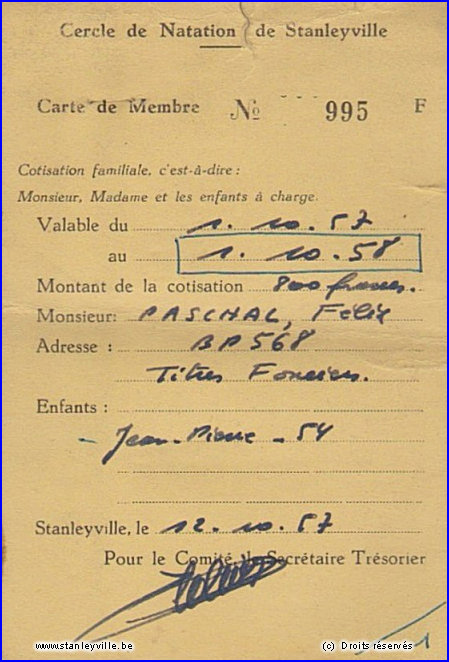 Cercle de Natation de Stanleyville
Carte de Membre No 995 F
Cotisation familiale, c'est-à-dire :
Monsieur, Madame et les enfants à charge.
Valable du 1. 10. 57
au 1. 10. 58
Montant de la cotisation 800 francs.
Monsieur: PASCHAL, Félix
Adresse : BP 568
Titres Fonciers.
Enfants :
- Jean-Pierre - 54
Stanleyville, le 12. 10. 57
Pour le Comité, le Secrétaire Trésorier
www.stanleyville.be
(c) Droits réservés